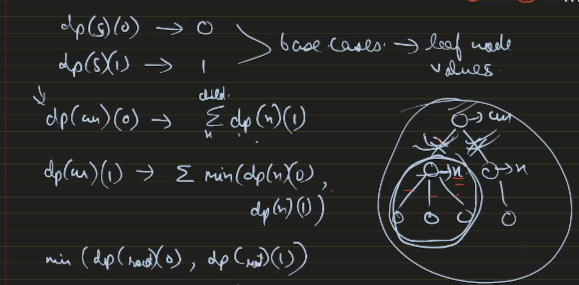 dp(s)(0) → 0
dp(s)(1) → 1
base cases → leaf node values
dp(cur)(0) → child Σ n dp(n)(1)
dp(cur)(1) → Σ min(dp(n)(0), dp(n)(1))
min (dp(root)(0), dp(root)(1))
→ cur
→ n
→ n